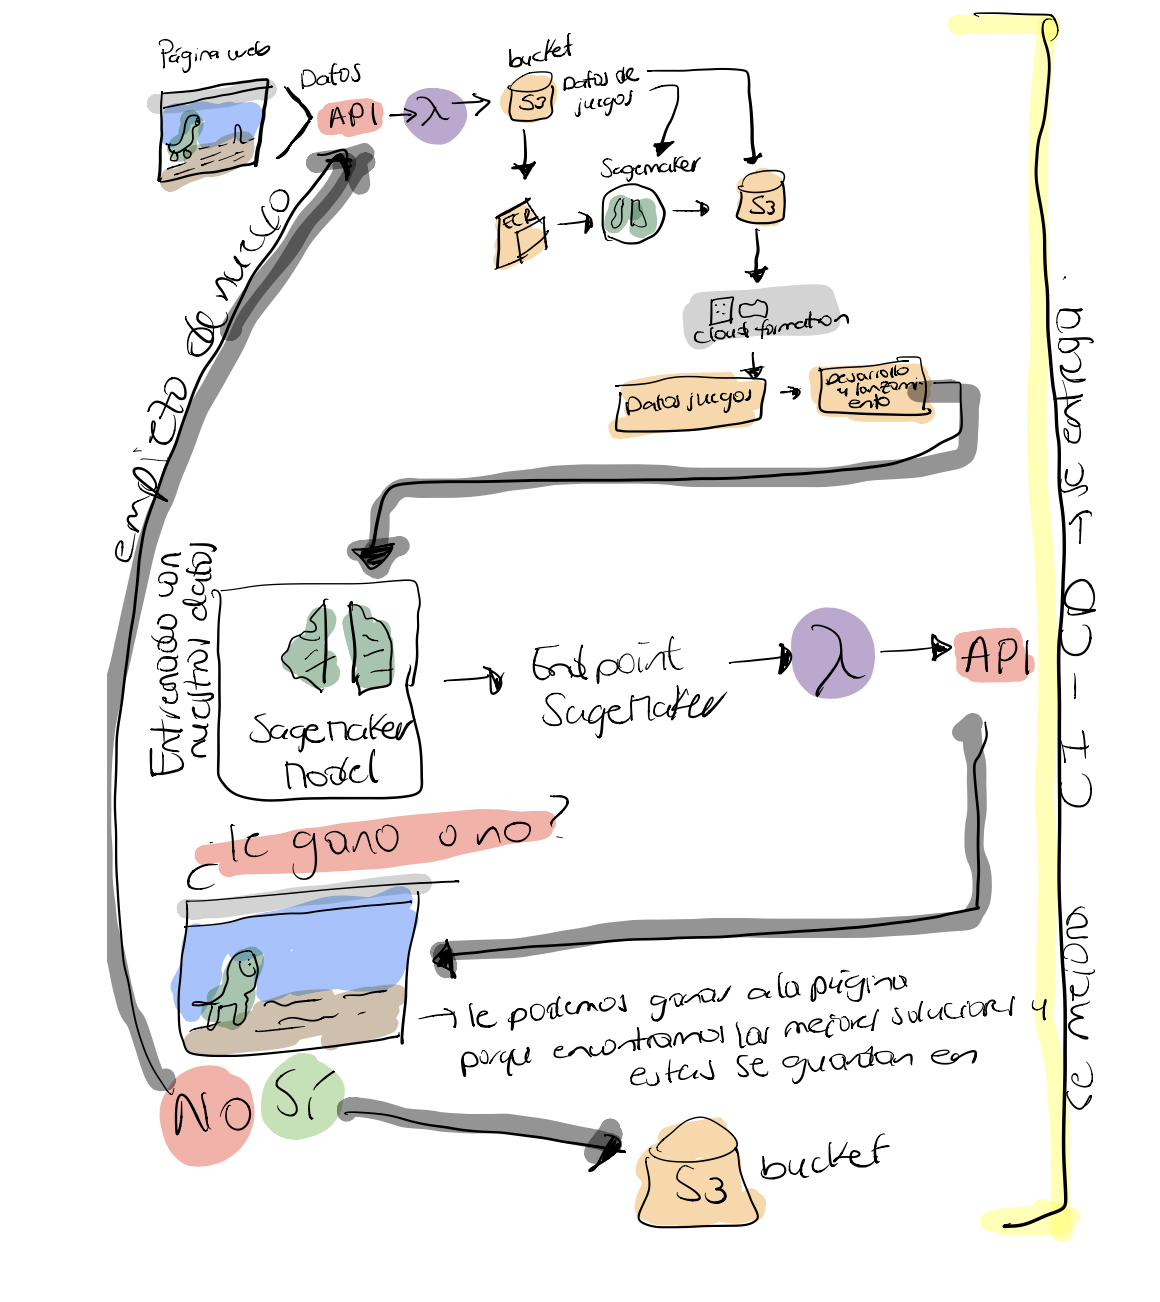 Página web
Datos
API
λ
bucket
S3
Datos de
juegos
Sagemaker
ECR
S3
cloud formation
Datos juegos
Desarrollo
y lanzami-
ento
empiezo de nuevo
Entrenado con
nuestros datos
Sagemaker
Model
Endpoint
SageMaker
λ
API
¿le gano o no?
→ le podemos ganar a la página
porque encontramos las mejores soluciones y
estas se guardan en
NO
Sí
S3
bucket
se mejora CI - CD → se entrega.